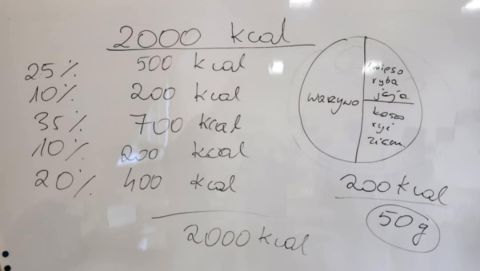 2000 kcal
25% 500 kcal
10% 200 kcal
35% 700 kcal
10% 200 kcal
20% 400 kcal
2000 kcal
warzywo
mięso
ryba
jaja
kasza
ryż
200 kcal
50g